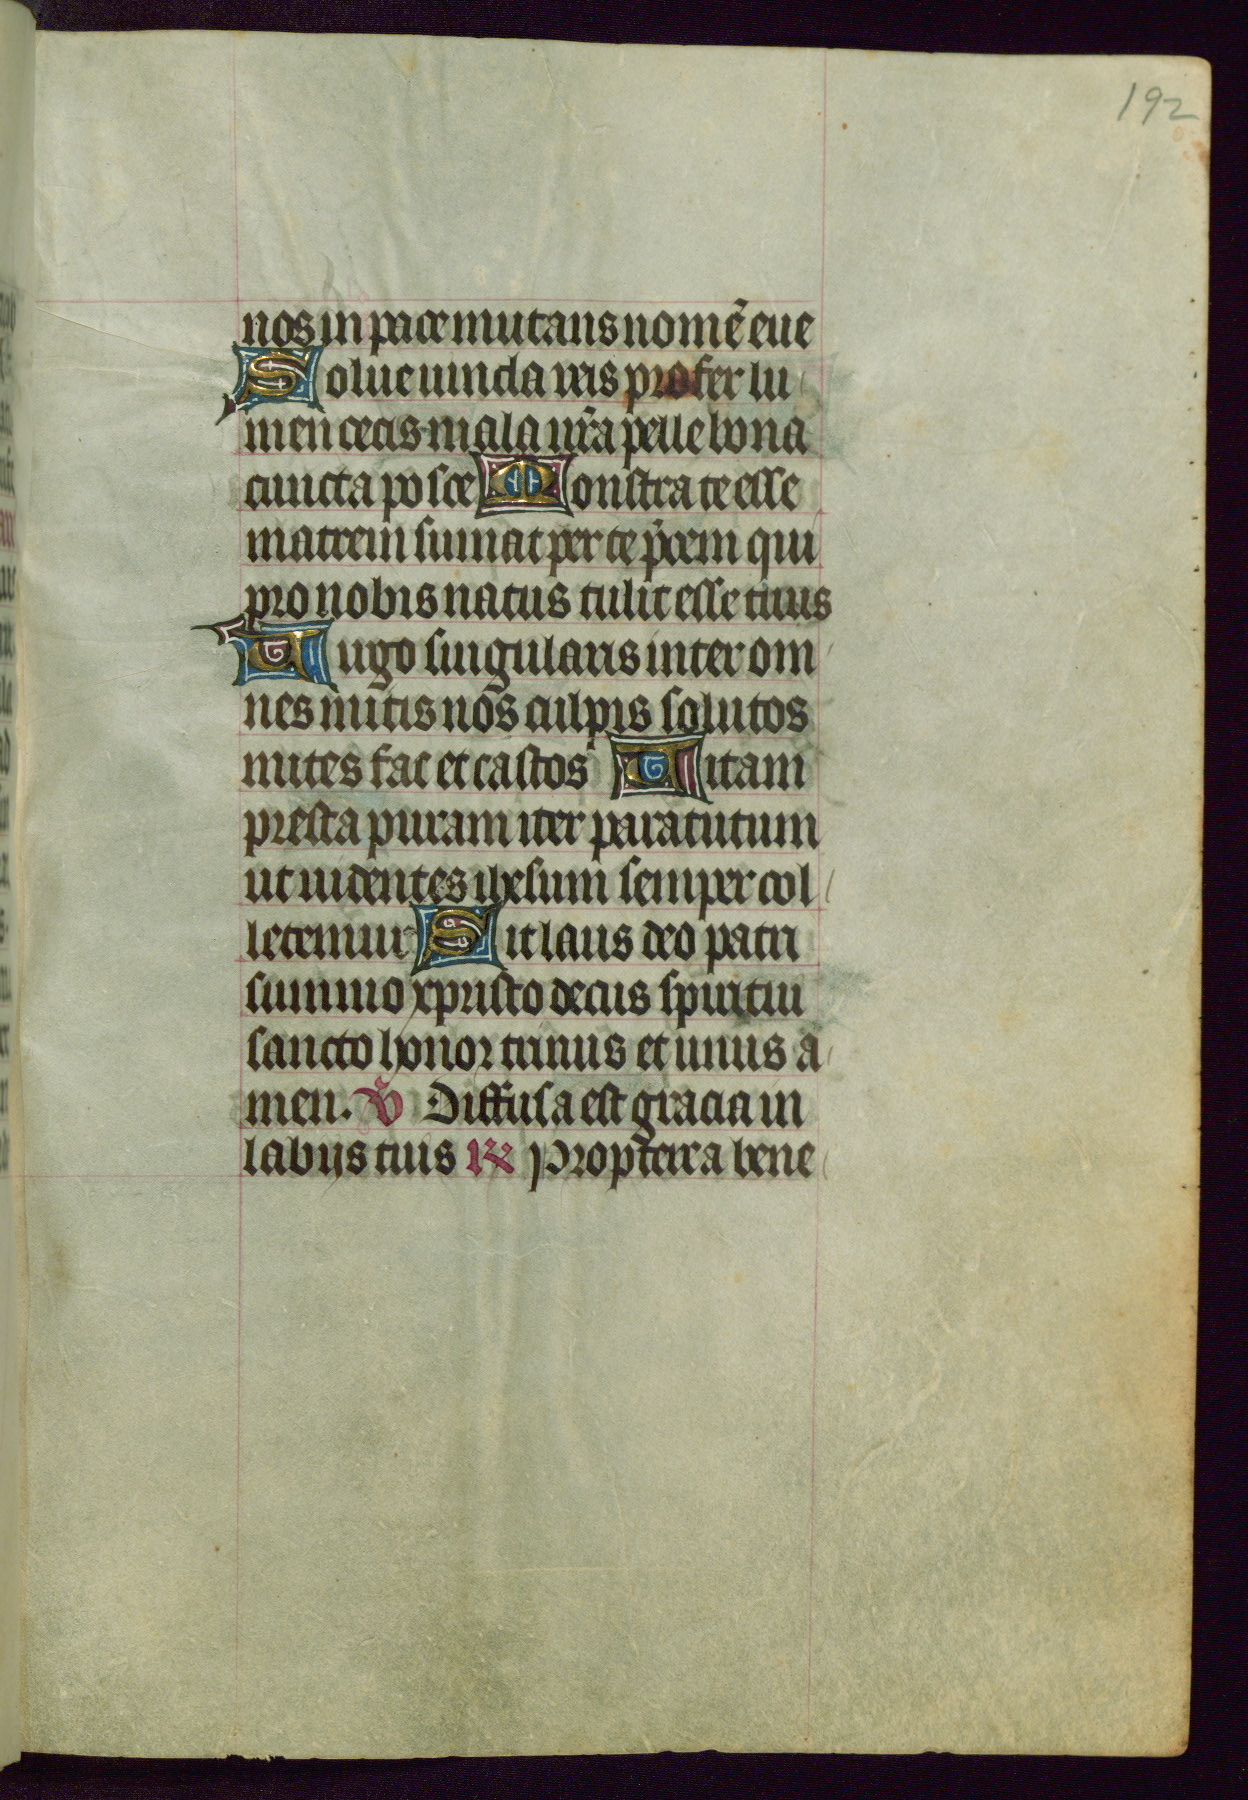 192
nos in pace mutans nomē eue
Solue uincla reis profer lu
men cecis mala nr̄a pelle bona
cuncta posce Monstra te esse
matrem sumat per te p̄cem qui
pro nobis natus tulit esse tuus
Uirgo singularis inter om
nes mitis nos culpis solutos
mites fac et castos Uitam
presta puram iter para tutum
ut uidentes ihesum semper col
letemur Sit laus deo patri
summo xpristo decus spiritui
sancto honor trinus et unus a
men. V̄ Diffusa est gracia in
labijs tuis R̷ Propterea bene